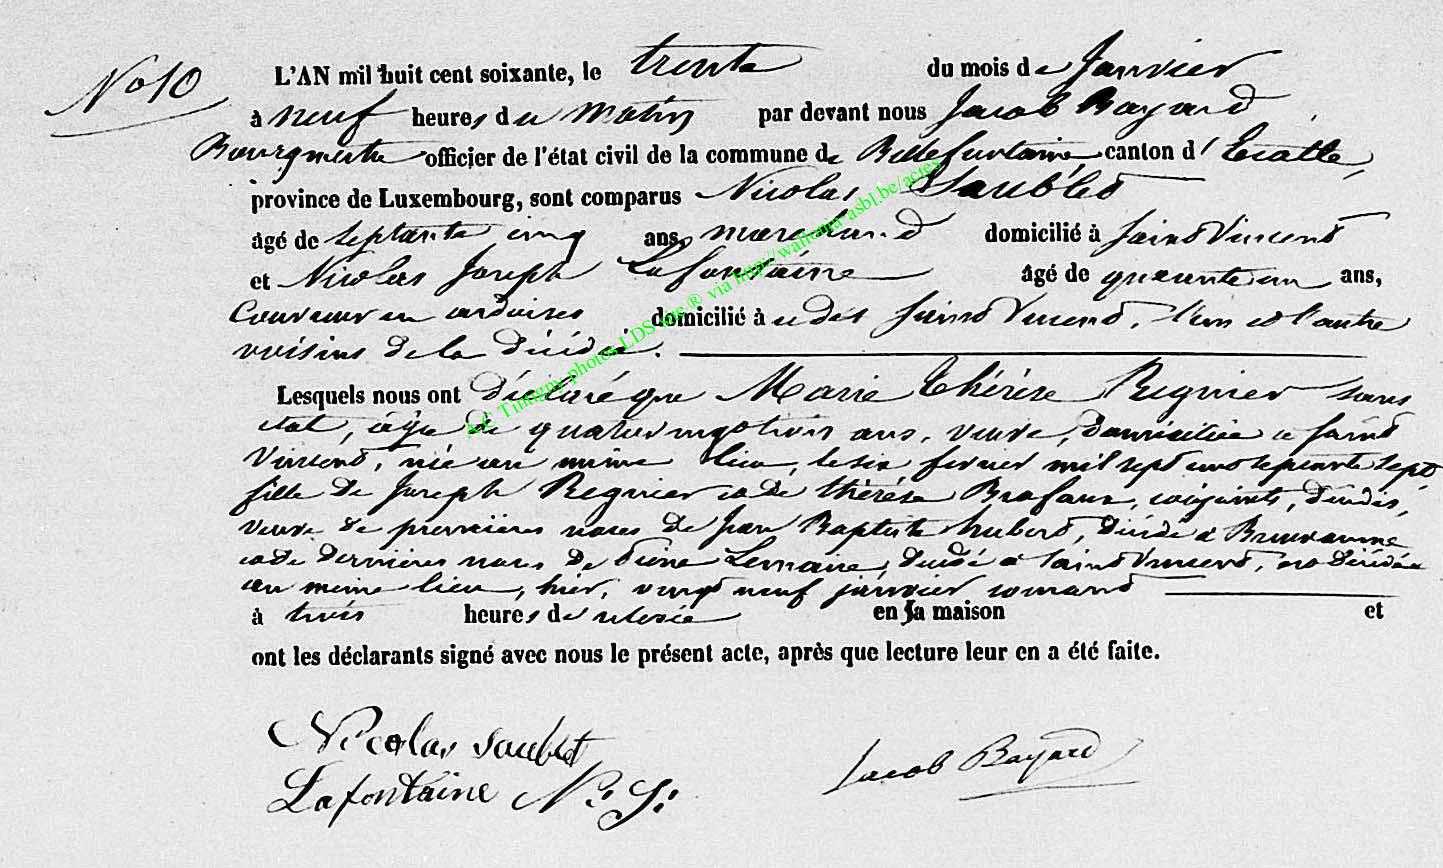 No 10
L'AN mil huit cent soixante, le trente du mois de Janvier
à neuf heures du matin par devant nous Jacob Bayard
Bourgmestre officier de l'état civil de la commune de Bellefontaine, canton d'Etalle,
province de Luxembourg, sont comparus Nicolas Saublet
âgé de septante cinq ans, marchand domicilié à Saint Vincent
et Nicolas Joseph Lafontaine âgé de quarante un ans,
Couvreur en ardoises domicilié à udit Saint Vincent, l'un et l'autre
voisins de la décédée.
Lesquels nous ont déclaré que Marie Thérèse Regnier sans
état, âgée de quatre vingt trois ans, veuve, domiciliée à Saint
Vincent, née au même lieu, le six février mil sept cent septante sept
fille de Joseph Regnier et de Thérèse conjoints, décédés,
veuve de premières noces de Jean Baptiste Hubert, décédé à
et de dernières noces de Lemaire, décédé à Saint Vincent, est décédée
au même lieu, hier, vingt neuf janvier courant
à trois heures de relevée en sa maison et
ont les déclarants signé avec nous le présent acte, après que lecture leur en a été faite.
Nicolas Saublet
Lafontaine N. J. Jacob Bayard
A.E. Tintigny photos LDS inc ® via http://wallonia-asbl.be/actes